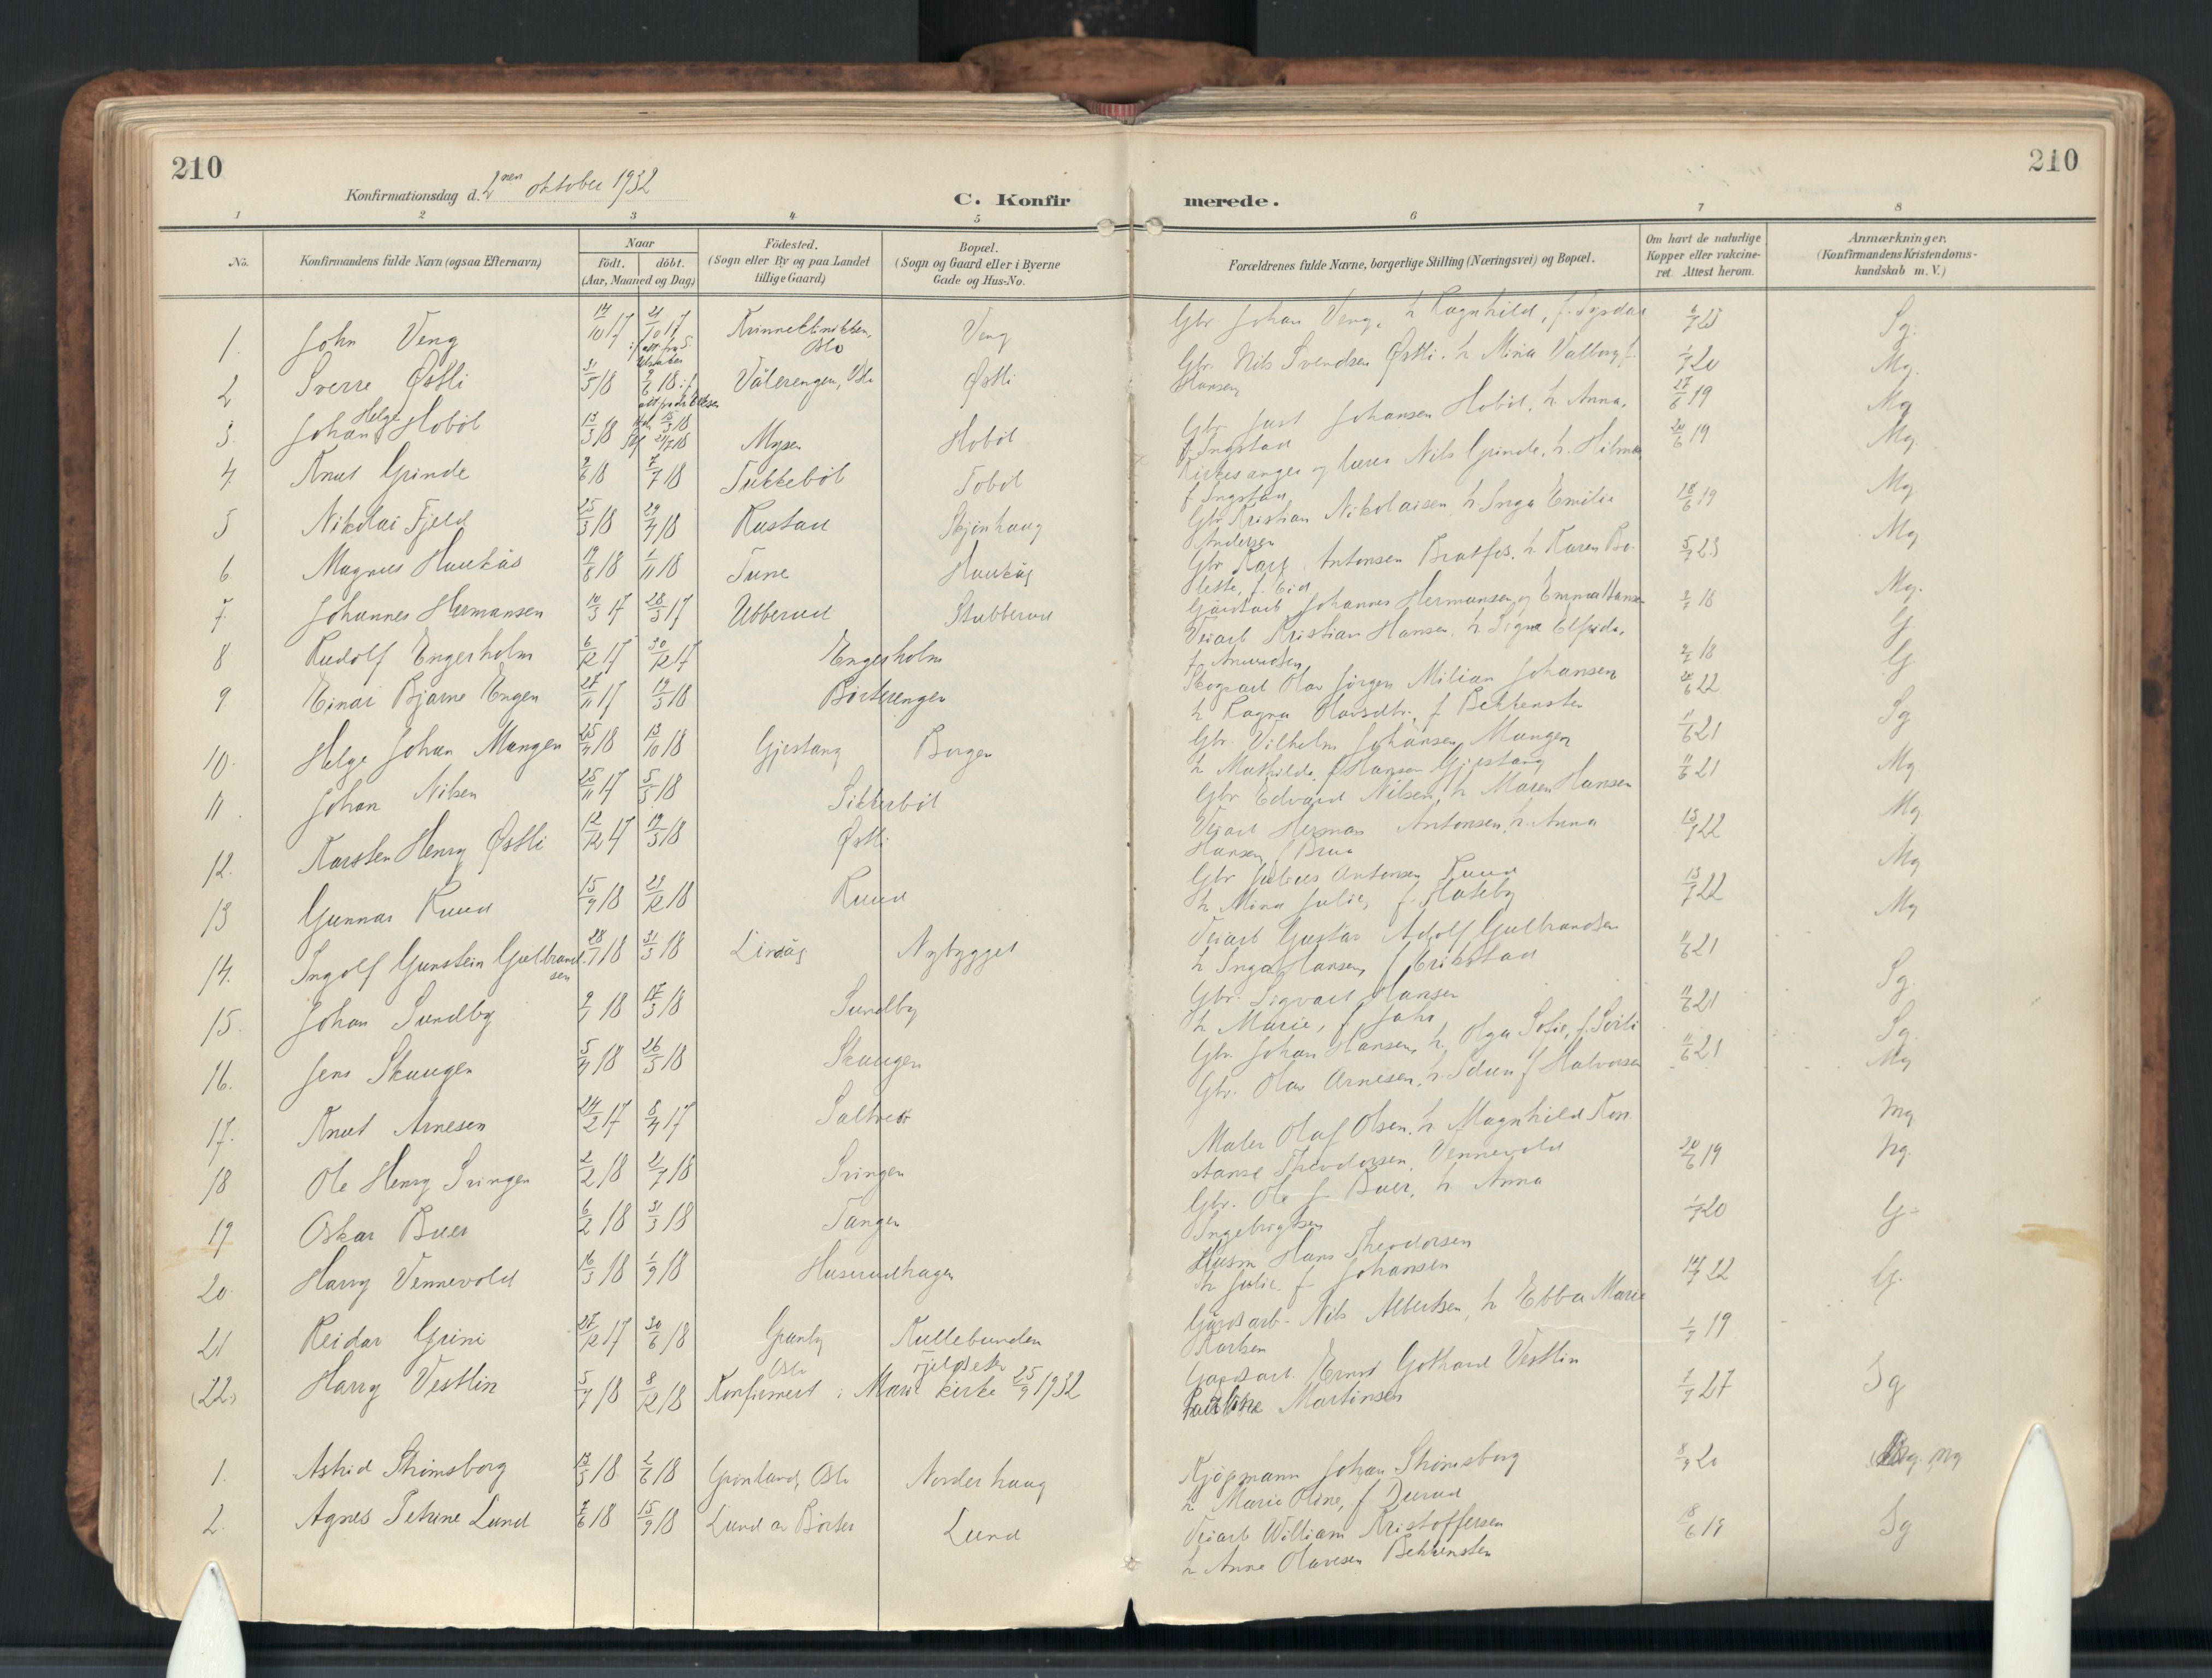 210
210
Konfirmationsdag d. 2nen oktober 1932
C. Konfirmerede.
1 2 3 4 5 6 7 8
No.
Konfirmandens fulde Navn (ogsaa Efternavn)
Naar
födt. döbt.
(Aar, Maaned og Dag)
Födested.
(Sogn eller By og paa Landet
tillige Gaard)
Bopæl.
(Sogn og Gaard eller i Byerne
Gade og Hus-No.
Forældrenes fulde Navne, borgerlige Stilling (Næringsvei) og Bopæl.
Om havt de naturlige
Kopper eller vakcine-
ret. Attest herom.
Anmærkninger.
(Konfirmandens Kristendoms-
kundskab m. V.)
1. John Veng 14/10 17 21/10 17 Oslo Veng Gbr. Johan Veng, h. Ragnhild, f. Sg.
2 Sverre Østli 31/5 18 9/6 18 Vålerengen, Oslo Østli Gbr. Nils Svendsen Østli. h. Mina Valborg f. Hansen 1/7 20 Mg.
3. Johan Helge Hobøl 13/3 18 Mysen Hobøl Gbr. Just Johansen Hobøl, h. Anna, f. Ingstad 27/6 19 Mg
4 Knut Grinde 9/6 18 7/7 18 Tukkebøl Tobøl Kirkesanger og lærer Nils Grinde, h. Hilma f. Ingstad 20/6 19 Mg
5 Nikolai Fjeld 25/3 18 29/4 18 Rustad Skjönhaug Gbr. Kristian Nikolaisen, h. Inga Emilie Andersen 18/6 19 Mg
6. Magnus Haukås 19/8 18 1/11 18 Tune Haukås Gbr Karl Antonsen h. Karen f. Eid 5/7 23 Mg
7. Johannes Hermansen 10/3 17 28/5 17 Ubberud Stubberud Gårdsarb Johannes Hermansen og Emma Hansen 18 Mg.
8 Rudolf Engerholm 6/12 17 30/12 17 Engerholm Veiarb Kristian Hansen, h. Signe Elfrida, f. Amundsen 18 G
9 Einar Bjarne Engen 27/11 17 19/5 18 Börterengen Skogsarb Olav Jörgen Milian Johansen h. Ragna Olavsdtr. f Bekkensten 22 G
10. Helge Johan Mangen 25/4 18 13/10 18 Gjestang Borgen Gbr. Vilhelm Johansen Mangen h. Mathilde, f Hansen Gjestang 11/6 21 Sg
11. Johan Nilsen 25/11 17 5/5 18 Sikkerbøl Gbr Edvard Nilsen, h Maren Hansen 11/6 21 Mg
12. Karsten Henry Østli 12/12 17 19/5 18 Østli Veiarb Herman Antonsen, h. Anna Hansen f Brua 13/7 22 Mg
13 Gunnar Ruud 15/9 18 29/12 18 Ruud Gbr Julius Antonsen Ruud h. Mina Julie, f. Slateby 13/7 22 Mg
14. Ingolf Gunstein Gulbrandsen 28/7 18 31/3 18 Linås Nybygget Veiarb Gustav Adolf Gulbrandsen h Inga Hansen f Eriksstad 11/6 21 Mg
15. Johan Sundby 18 17/3 18 Sundby Gbr. Sigvart Hansen h. Marie, f Jahr 11/6 21 Sg
16. Jens Skaugen 5/4 18 26/5 18 Skaugen Gbr. Johan Hansen, h. Olga Sofie, f. 11/6 21 Sg
17. Knut Arnesen 24/2 17 8/4 17 Gbr. Olav Arnesen, h. f Halvorsen Mg
18 Ole Henry Svingen 2/2 18 18 Svingen Maler Olaf Olsen. h. Magnhild Konstanse Theodorsen, Vennevold 30/6 19 Mg
19 Oskar Buer 6/2 18 31/3 18 Tangen Gbr. Ole J Buer, h. Anna Ingebrigtsen 1/7 20 Ng.
20. Harry Vennevold 16/3 18 1/9 18 Huserudhagen Husm Hans Theodorsen h. Julie. f Johansen 22 G
21 Reidar Grini 27/12 17 30/6 18 Granly Kullebunden Gårdsarb. Nils Albertsen, h Ebba Marie Karlsen 1/7 19 G.
(22) Harry Vestlin 5/7 18 8/12 18 Oslo Fjeldseter Gaardsarb. Ernst Gothard Vestlin Martinsen 27 Sg
Konfirmert i Mari kirke 25/9 1932
1. Astrid Strömsborg 13/5 18 2/6 18 Grönland, Oslo Norderhaug Kjøpmann Johan Strömsborg h Marie Oline, f Durud 8/9 20 Mg
2. Agnes Petrine Lund 7/6 18 15/9 18 Lund av Börter Lund Veiarb William Kristoffersen h Anna Olavesen Bekkensten 18/6 19 Sg